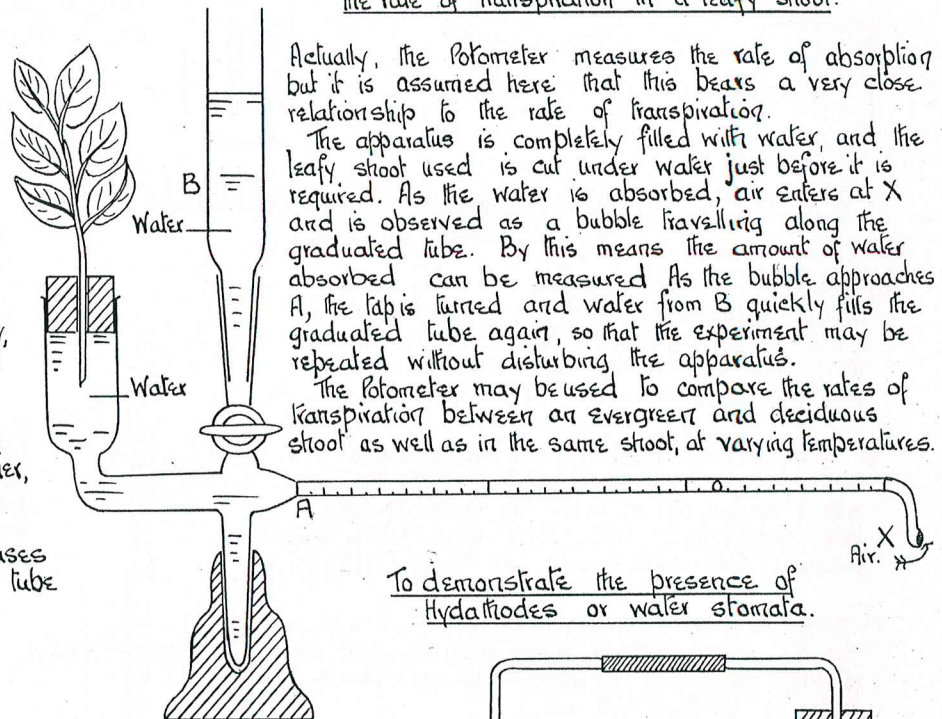 the rate of Transpiration in a leafy shoot.
Actually, the Potometer measures the rate of absorption
but it is assumed here that this bears a very close
relationship to the rate of transpiration.
The apparatus is completely filled with water, and the
leafy shoot used is cut under water just before it is
required. As the water is absorbed, air enters at X
and is observed as a bubble travelling along the
graduated tube. By this means the amount of water
absorbed can be measured As the bubble approaches
A, the tap is turned and water from B quickly fills the
graduated tube again, so that the experiment may be
repeated without disturbing the apparatus.
The Potometer may be used to compare the rates of
transpiration between an evergreen and deciduous
shoot as well as in the same shoot, at varying temperatures.
B
Water
Water
A
X
Air.
tube
To demonstrate the presence of
Hydathodes or water stomata.